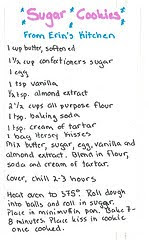 Sugar Cookies
From Erin's Kitchen
1 cup butter, softened
1 1/2 cup confectioners sugar
1 egg
1 tsp vanilla
1/2 tsp. almond extract
2 1/2 cups all purpose flour
1 tsp. baking soda
1 tsp. cream of tartar
1 bag Hersey Kisses
Mix butter, sugar, egg, vanilla and
almond extract. Blend in flour,
soda and cream of tartar.
Cover, chill 2-3 hours
Heat oven to 375°. Roll dough
into balls and roll in sugar.
Place in mini muffin pan. Bake 7-
8 minutes. Place kiss in cookie
once cooked.